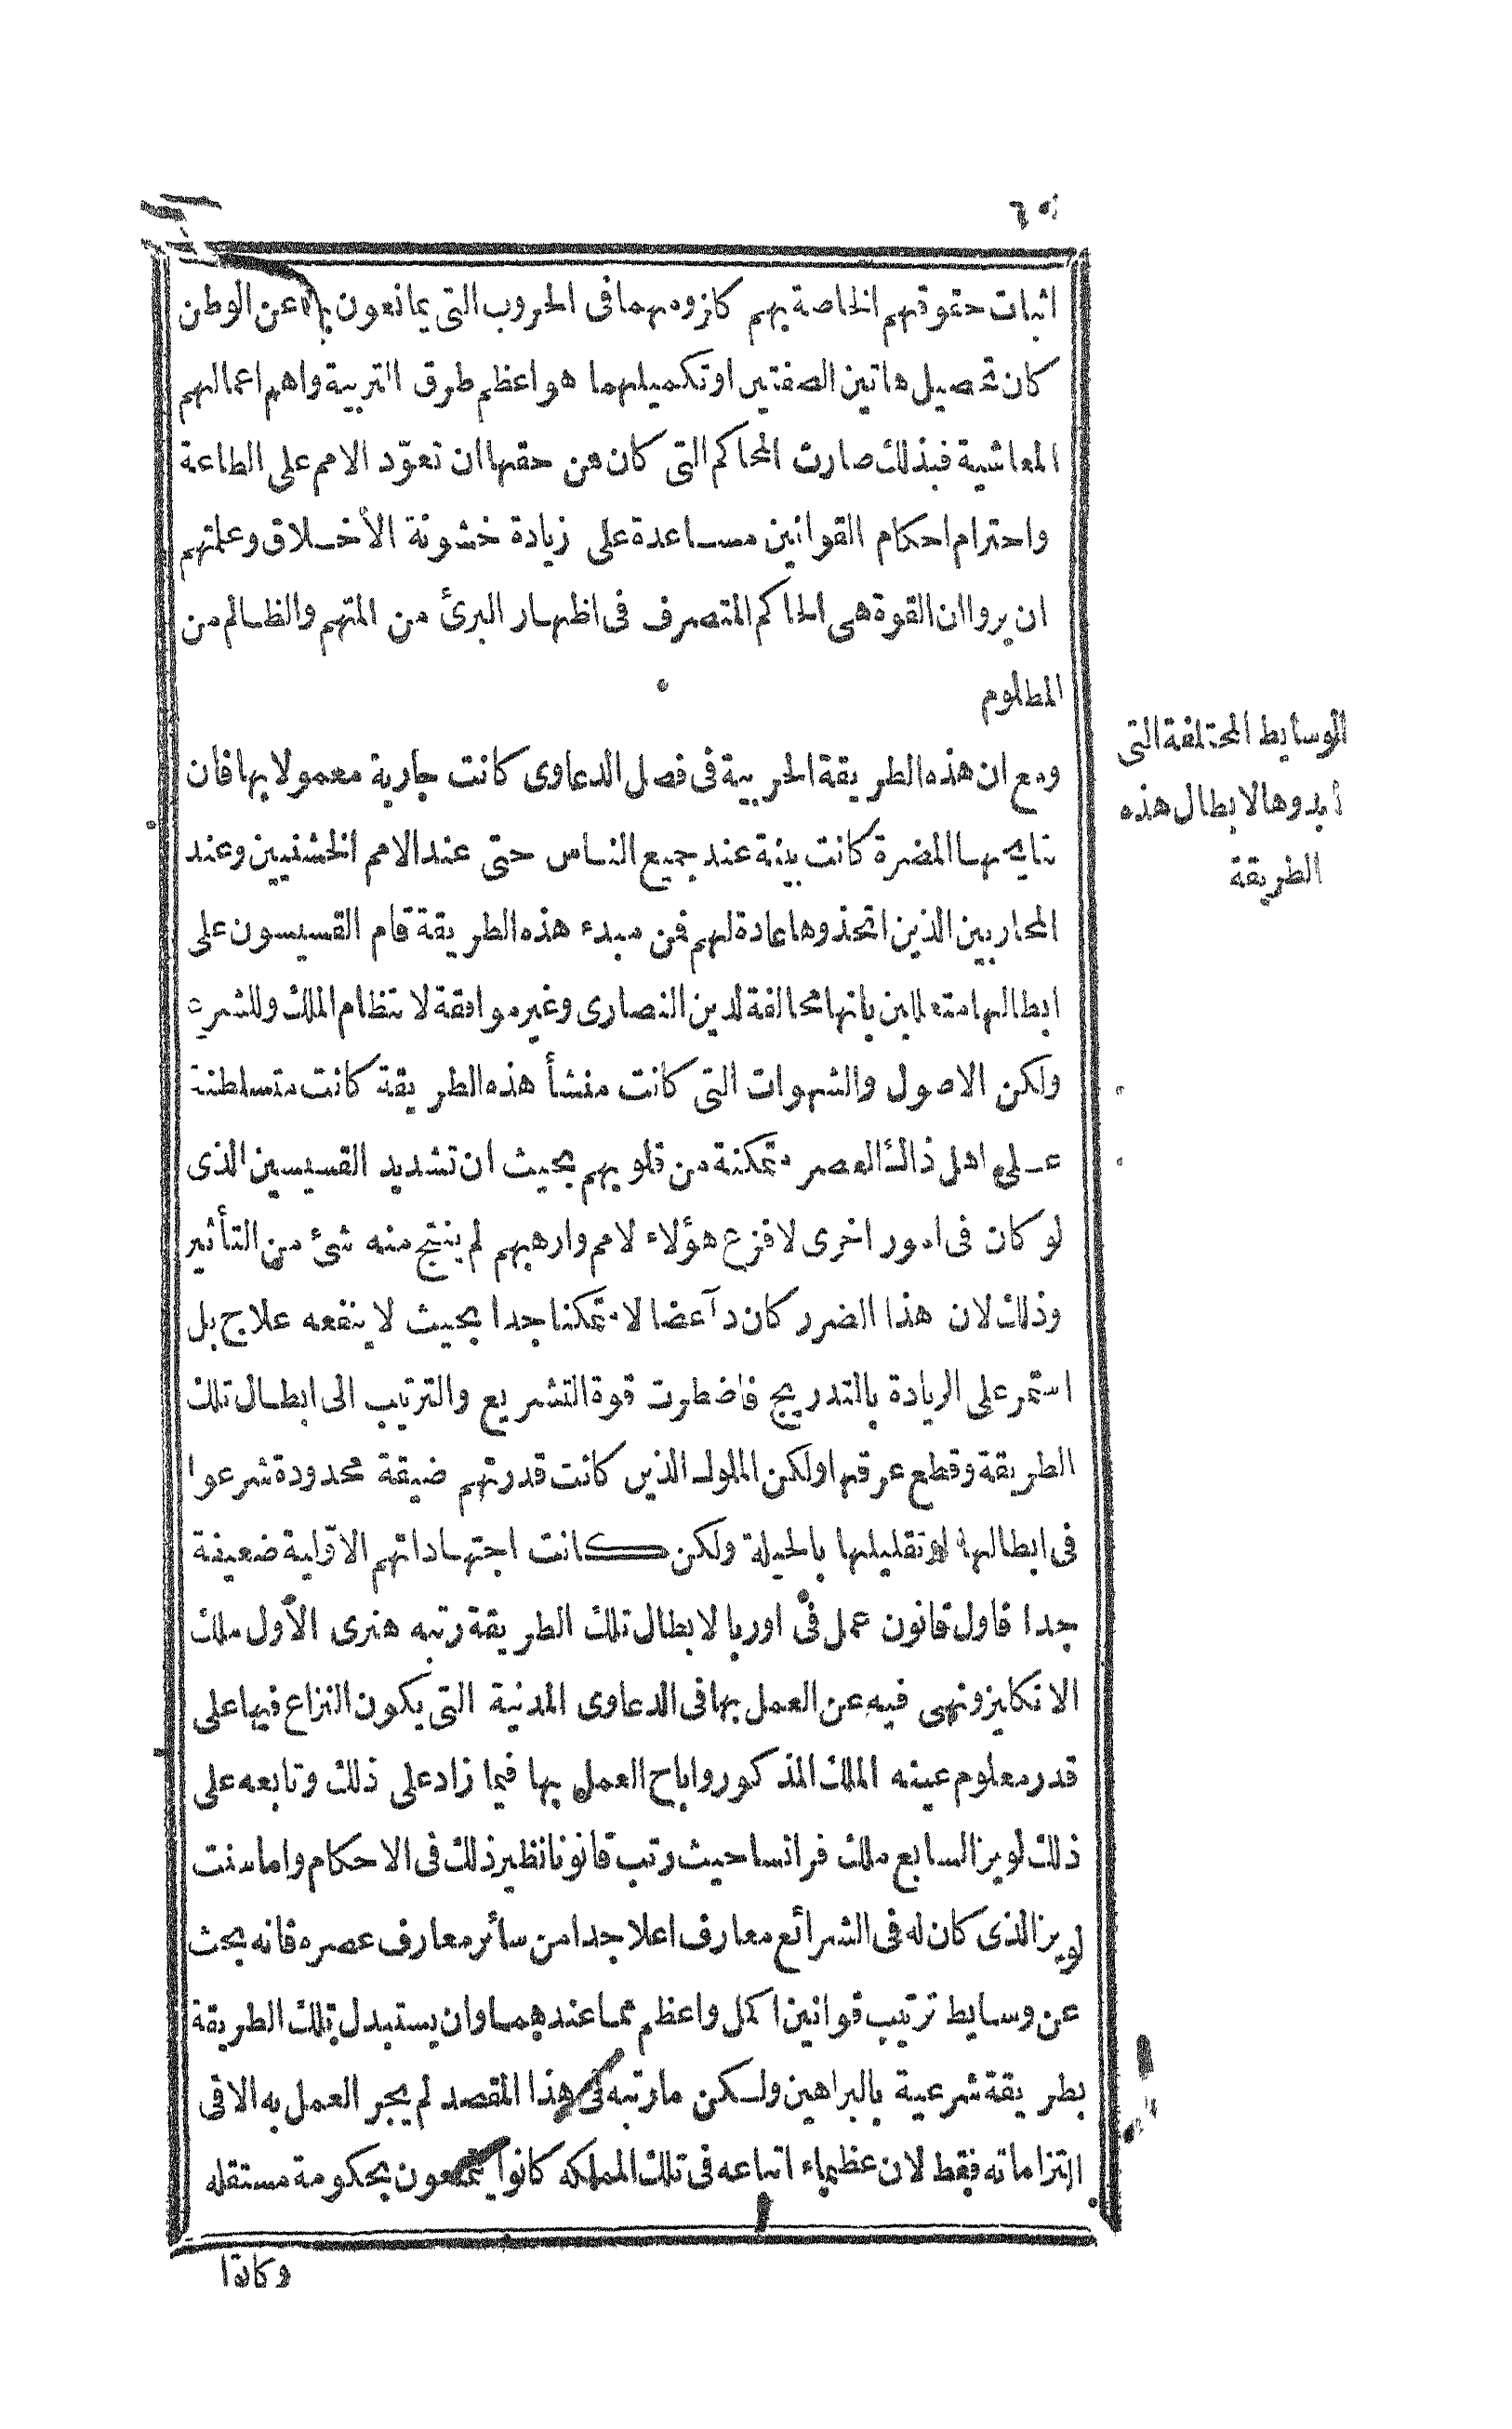 اثبات حقوقهم الخاصة بهم كازومهما فى الحروب التى يمانعون بها عن الوطن
كان تحصيل هاتين الصفتين او تكميلهما هو اعظم طرق التربية واهم اعمالهم
المعاشية فبذلك صارت المحاكم التى كان من حقها ان تعوّد الامم على الطاعة
واحترام احكام القوانين مساعدة على زيادة خشونة الأخلاق وعلمتهم
ان يروا ان القوة هى الحاكم المتصرف فى اظهار البرئ من المتهم والظالم من
المظلوم
ومع ان هذه الطريقة الحربية فى فصل الدعاوى كانت جارية معمولا بها فان
نتايجها المضرة كانت بينة عند جميع الناس حتى عند الامم الخشنيين وعند
المحاربين الذين اتخذوها عادة لهم فمن مبدء هذه الطريقة قام القسيسون على
ابطالها متعللين بانها مخالفة لدين النصارى وغير موافقة لانتظام الملك وللشرع
ولكن الاصول والشهوات التى كانت منشأ هذه الطريقة كانت متسلطنة
على اهل ذالك العصر متمكنة من قلوبهم بحيث ان تشديد القسيسين الذى
لو كان فى امور اخرى لافزع هؤلاء لامم وارهبهم لم ينتج منه شئ من التأثير
وذلك لان هذا الضرر كان دآعضالا متمكنا جدا بحيث لا ينفعه علاج بل
استمر على الزيادة بالتدريج فاضطرت قوة التشريع والترتيب الى ابطال تلك
الطريقة وقطع عرقها ولكن الملوك الذين كانت قدرتهم ضيقة محدودة شرعوا
فى ابطالها او تقليلها بالحيلة ولكن كانت اجتهاداتهم الاوّلية ضعيفة
جدا فاول قانون عمل فى اوربا لابطال تلك الطريقة رتبه هنرى الأول ملك
الانكليز ونهى فيه عن العمل بها فى الدعاوى المدنية التى يكون النزاع فيها على
قدر معلوم عينه الملك المذكور واباح العمل بها فيما زاد على ذلك وتابعه على
ذلك لويز السابع ملك فرانسا حيث رتب قانونا نظير ذلك فى الاحكام واما سنت
لويز الذى كان له فى الشرائع معارف اعلا جدا من سائر معارف عصره فانه بحث
عن وسايط ترتيب قوانين اكمل واعظم مما عندهم وان يستبدل تلك الطريقة
بطريقة شرعية بالبراهين ولكن مارتبه فى هذا المقصد لم يجر العمل به الا فى
التزاماته فقط لان عظماء اتباعه فى تلك المملكه كانوا يتمتعون بحكومة مستقله
وكانوا
الوسايط المختلفة التى
ابدوها لابطال هذه
الطريقة